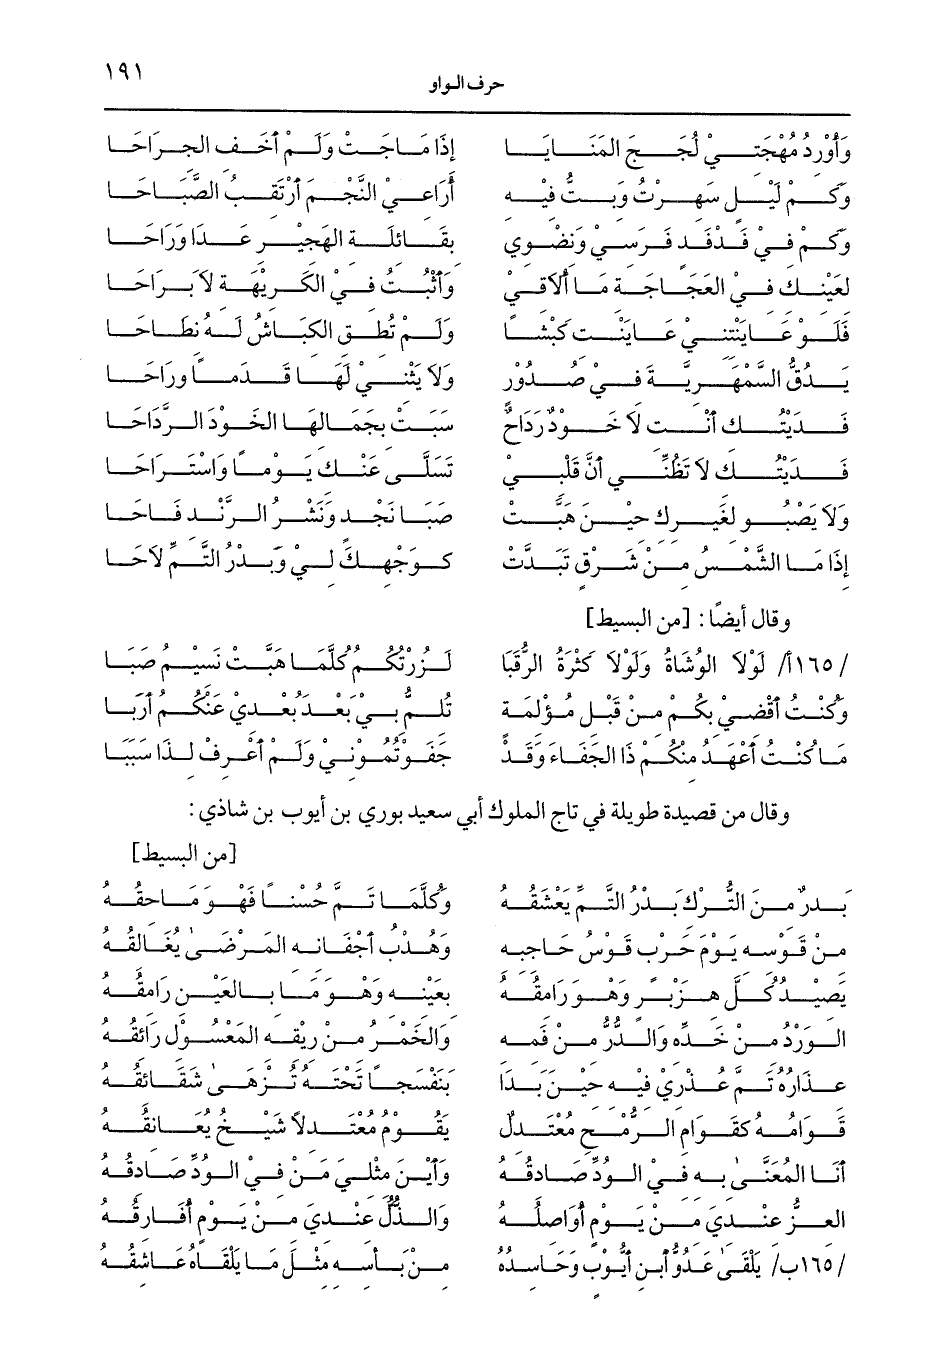 ١٩١
حرف الواو
وَأُوْرِدُ مُهْجَتِي لُجَجَ المَنَايَا إذَا مَاجَتْ وَلَمْ أَخَفِ الجِرَاحَا
وَكَمْ لَيْلٍ سَهِرْتُ وَبِتُّ فِيْهِ أُرَاعِيْ النَّجْمَ أَرْتَقِبُ الصَّبَاحَا
وَكَمْ فِيْ فَدْفَدٍ فَرَسِي وَنِضْوِي بِقَائِلَةِ الهَجِيْرِ غَدَا وَرَاحَا
لِعَيْنِكَ فِي العَجَاجَةِ مَا أُلاَقِيْ وَأَثْبُتُ فِيْ الكَرِيْهَةِ لاَ بَرَاحَا
فَلَوْ عَايَنْتِنِي عَايَنْتِ كَبْشًا وَلَمْ تُطِقِ الكِبَاشُ لَهُ نِطَاحَا
يَدُقُّ السَّمْهَرِيَّةَ فِي صُدُوْرٍ وَلاَ يَثْنِيْ لَهَا قَدَمًا وِرَاحَا
فَدَيْتُكَ أَنْتَ لاَ خَوْدٌ رَدَاحٌ سَبَتْ بِجَمَالِهَا الخَوْدَ الرَّدَاحَا
فَدَيْتُكَ لاَ تَظُنِّي أَنَّ قَلْبِيْ تَسَلَّى عَنْكَ يَوْمًا وَاسْتَرَاحَا
وَلاَ يَصْبُو لِغَيْرِكَ حِيْنَ هَبَّتْ صَبَا نَجْدٍ وَنَشْرُ الرَّنْدِ فَاحَا
إذَا مَا الشَّمْسُ مِنْ شَرْقٍ تَبَدَّتْ كَوَجْهِكَ لِيْ وَبَدْرُ التِّمِّ لاَحَا
وقال أيضًا: [من البسيط]
/١٦٥أ/ لَوْلاَ الوُشَاةُ وَلَوْلاَ كَثْرَةُ الرُّقَبَا لَزُرْتُكُمْ كُلَّمَا هَبَّتْ نَسِيْمُ صَبَا
وَكُنْتُ أَقْضِيْ بِكُمْ مِنْ قَبْلِ مُؤْلِمَةٍ تُلِمُّ بِيْ بَعْدَ بُعْدِيْ عَنْكُمُ أَرَبَا
مَا كُنْتُ أَعْهَدُ مِنْكُمْ ذَا الجَفَاءَ وَقَدْ جَفَوْتُمُوْنِيْ وَلَمْ أَعْرِفْ لِذَا سَبَبَا
وقال من قصيدة طويلة في تاج الملوك أبي سعيد بوري بن أيوب بن شاذي:
[من البسيط]
بَدْرٌ مِنَ التُّرْكِ بَدْرُ التِّمِّ يَعْشَقُهُ وَكُلَّمَا تَمَّ حُسْنًا فَهْوَ مَاحِقُهُ
مِنْ قَوْسِهِ يَوْمَ حَرْبٍ قَوْسُ حَاجِبِهِ وَهُدْبُ أَجْفَانِهِ المَرْضَىٰ يَغَالِقُهُ
يَصِيْدُ كُلَّ هِزَبْرٍ وَهْوَ رَامِقُهُ بِعَيْنِهِ وَهْوَ مَا بِالعَيْنِ رَامِقُهُ
الوَرْدُ مِنْ خَدِّهِ وَالدُّرُّ مِنْ فَمِهِ وَالخَمْرُ مِنْ رِيْقِهِ المَعْسُوْلِ رَائِقُهُ
عِذَارُهُ تَمَّ عُذْرِي فِيْهِ حِيْنَ بَدَا بَنَفْسَجًا تَحْتَهُ تَزْهَىٰ شَقَائِقُهُ
قَوَامُهُ كَقَوَامِ الرُّمْحِ مُعْتَدِلٌ يَقُوْمُ مُعْتَدِلاً شَيْخٌ يُعَانِقُهُ
أَنَا المُعَنَّىٰ بِهِ فِيْ الوُدِّ صَادِقُهُ وَأَيْنَ مِثْلِيَ مَنْ فِيْ الوُدِّ صَادِقُهُ
العِزُّ عِنْدِيَ مِنْ يَوْمٍ أُوَاصِلُهُ وَالذُّلُّ عِنْدِيَ مِنْ يَوْمٍ أُفَارِقُهُ
/١٦٥ب/ يَلْقَىٰ عَدُوُّ ابْنِ أَيُّوْبٍ وَحَاسِدُهُ مِنْ بَأْسِهِ مِثْلَ مَا يَلْقَاهُ عَاشِقُهُ